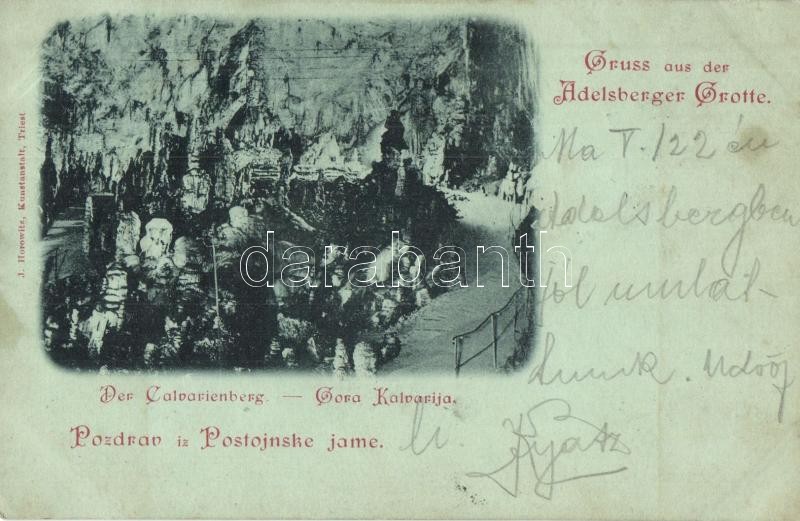 Gruss aus der
Adelsberger Grotte.
J. Horowitz, Kunstanstalt, Triest
darabanth.com
Ma I./22 én
Adelsbergben
jól mulat-
tunk.
Der Calvarienberg. — Gora Kalvarija.
Pozdrav iz Postojnske jame.